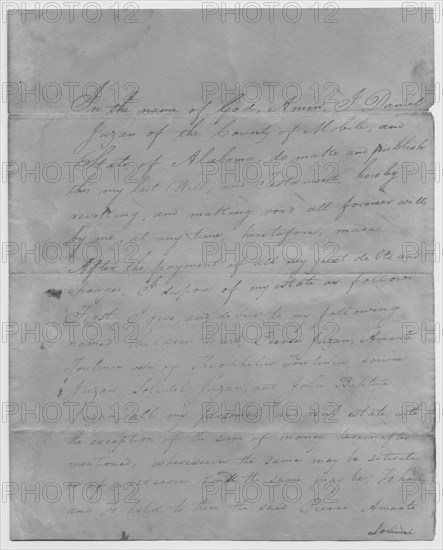 In the name of God, Amen, I Daniel
Juzan of the County of Mobile, and
State of Alabama, do make and publish
this my last Will, and Testament hereby
revoking, and making void all former wills
by me at any time, heretofore, made
After the payment of all my just debts and
charges I dispose of my estate as follows
First I give, and devise to my following
named children Pierre Juzan, Amante
Toulmin wife of Theophilus Toulmin
Juzan, Juzan, and John Baptiste
Juzan, all my personal and real estate, with
the exception of the sum of money hereinafter
mentioned, wheresoever the same may be situate
or of whatsoever the same may be, To have
and to hold to them the said Pierre, Amante